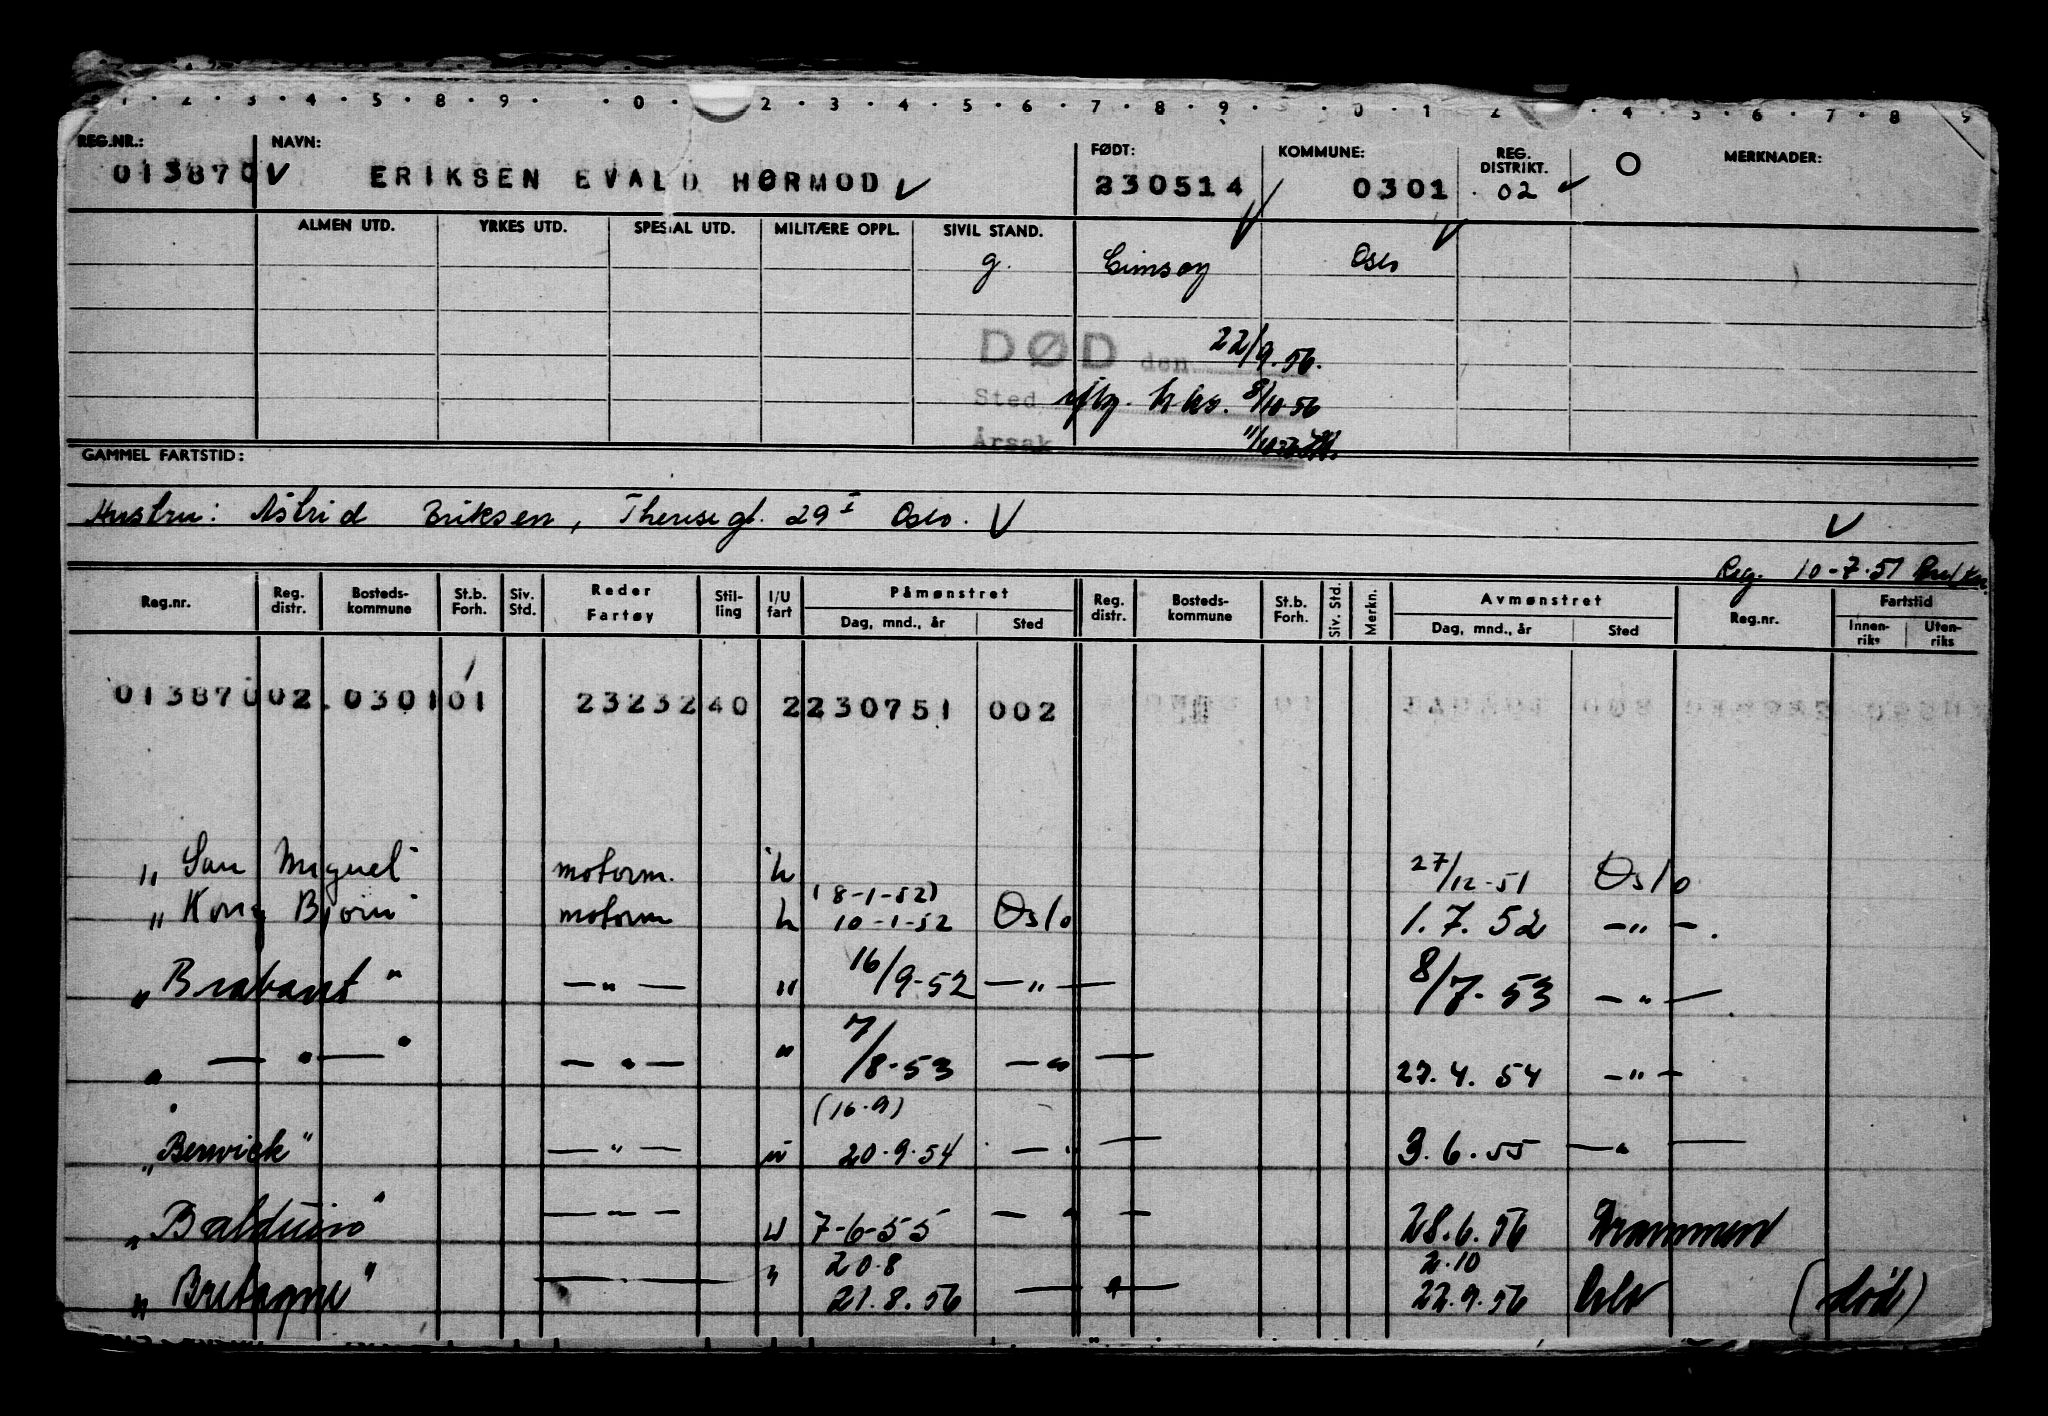 1 · 2 · 3 · 4 · 5 · 8 · 9 · · 0 · 2 · 3 · 4 · 5 · 6 · 7 · 8 · 9 · 0 · 1 2 · 4 · 5 · 6 · 7 · 8 9
REG.NR.: NAVN: FØDT: KOMMUNE: REG. DISTRIKT. O MERKNADER:
013870 V ERIKSEN EVALD HØRMOD V 230514 0301 02
ALMEN UTD. YRKES UTD. SPESIAL UTD. MILITÆRE OPPL. SIVIL STAND.
g. Gimsøy Oslo
DØD den 22/9.56.
Sted 8/10 56
Årsak
GAMMEL FARTSTID:
Hustru: Astrid Eriksen, Theresegt. 29 I Oslo. V V
Reg. 10-7-51
Reg.nr. Reg. distr. Bosteds- kommune St.b. Forh. Siv. Std. Reder Fartøy Stil- ling I/U fart Påmønstret Reg. distr. Bosteds- kommune St.b. Forh. Siv. Std. Merkn. Avmønstret Reg.nr. Fartstid
Dag, mnd., år Sted Dag, mnd., år Sted Innen- riks Uten- riks
013870 02 0301 01 23232 40 2 230751 002
„ San Miguel" motorm. u 27/12-51 Oslo
(8-1-52)
„ Kong Bjørn" motorm u 10-1-52 Oslo 1.7.52 —"—.
„ Brabant " —"— " 16/9-52 —"— 8/7-53 —"—
„ —"—" —"— " 7/8-53 —"— 27.4.54 —"—
(16.9)
„Berwick" —"— u 20.9.54 —"— 3.6.55 —"—
„Balduin" —"— u 7-6-55 —"— 28.6.56 Drammen
20.8 2.10
„ Bretagne" —"— " 21.8.56 —"— 22.9.56 Oslo (død)